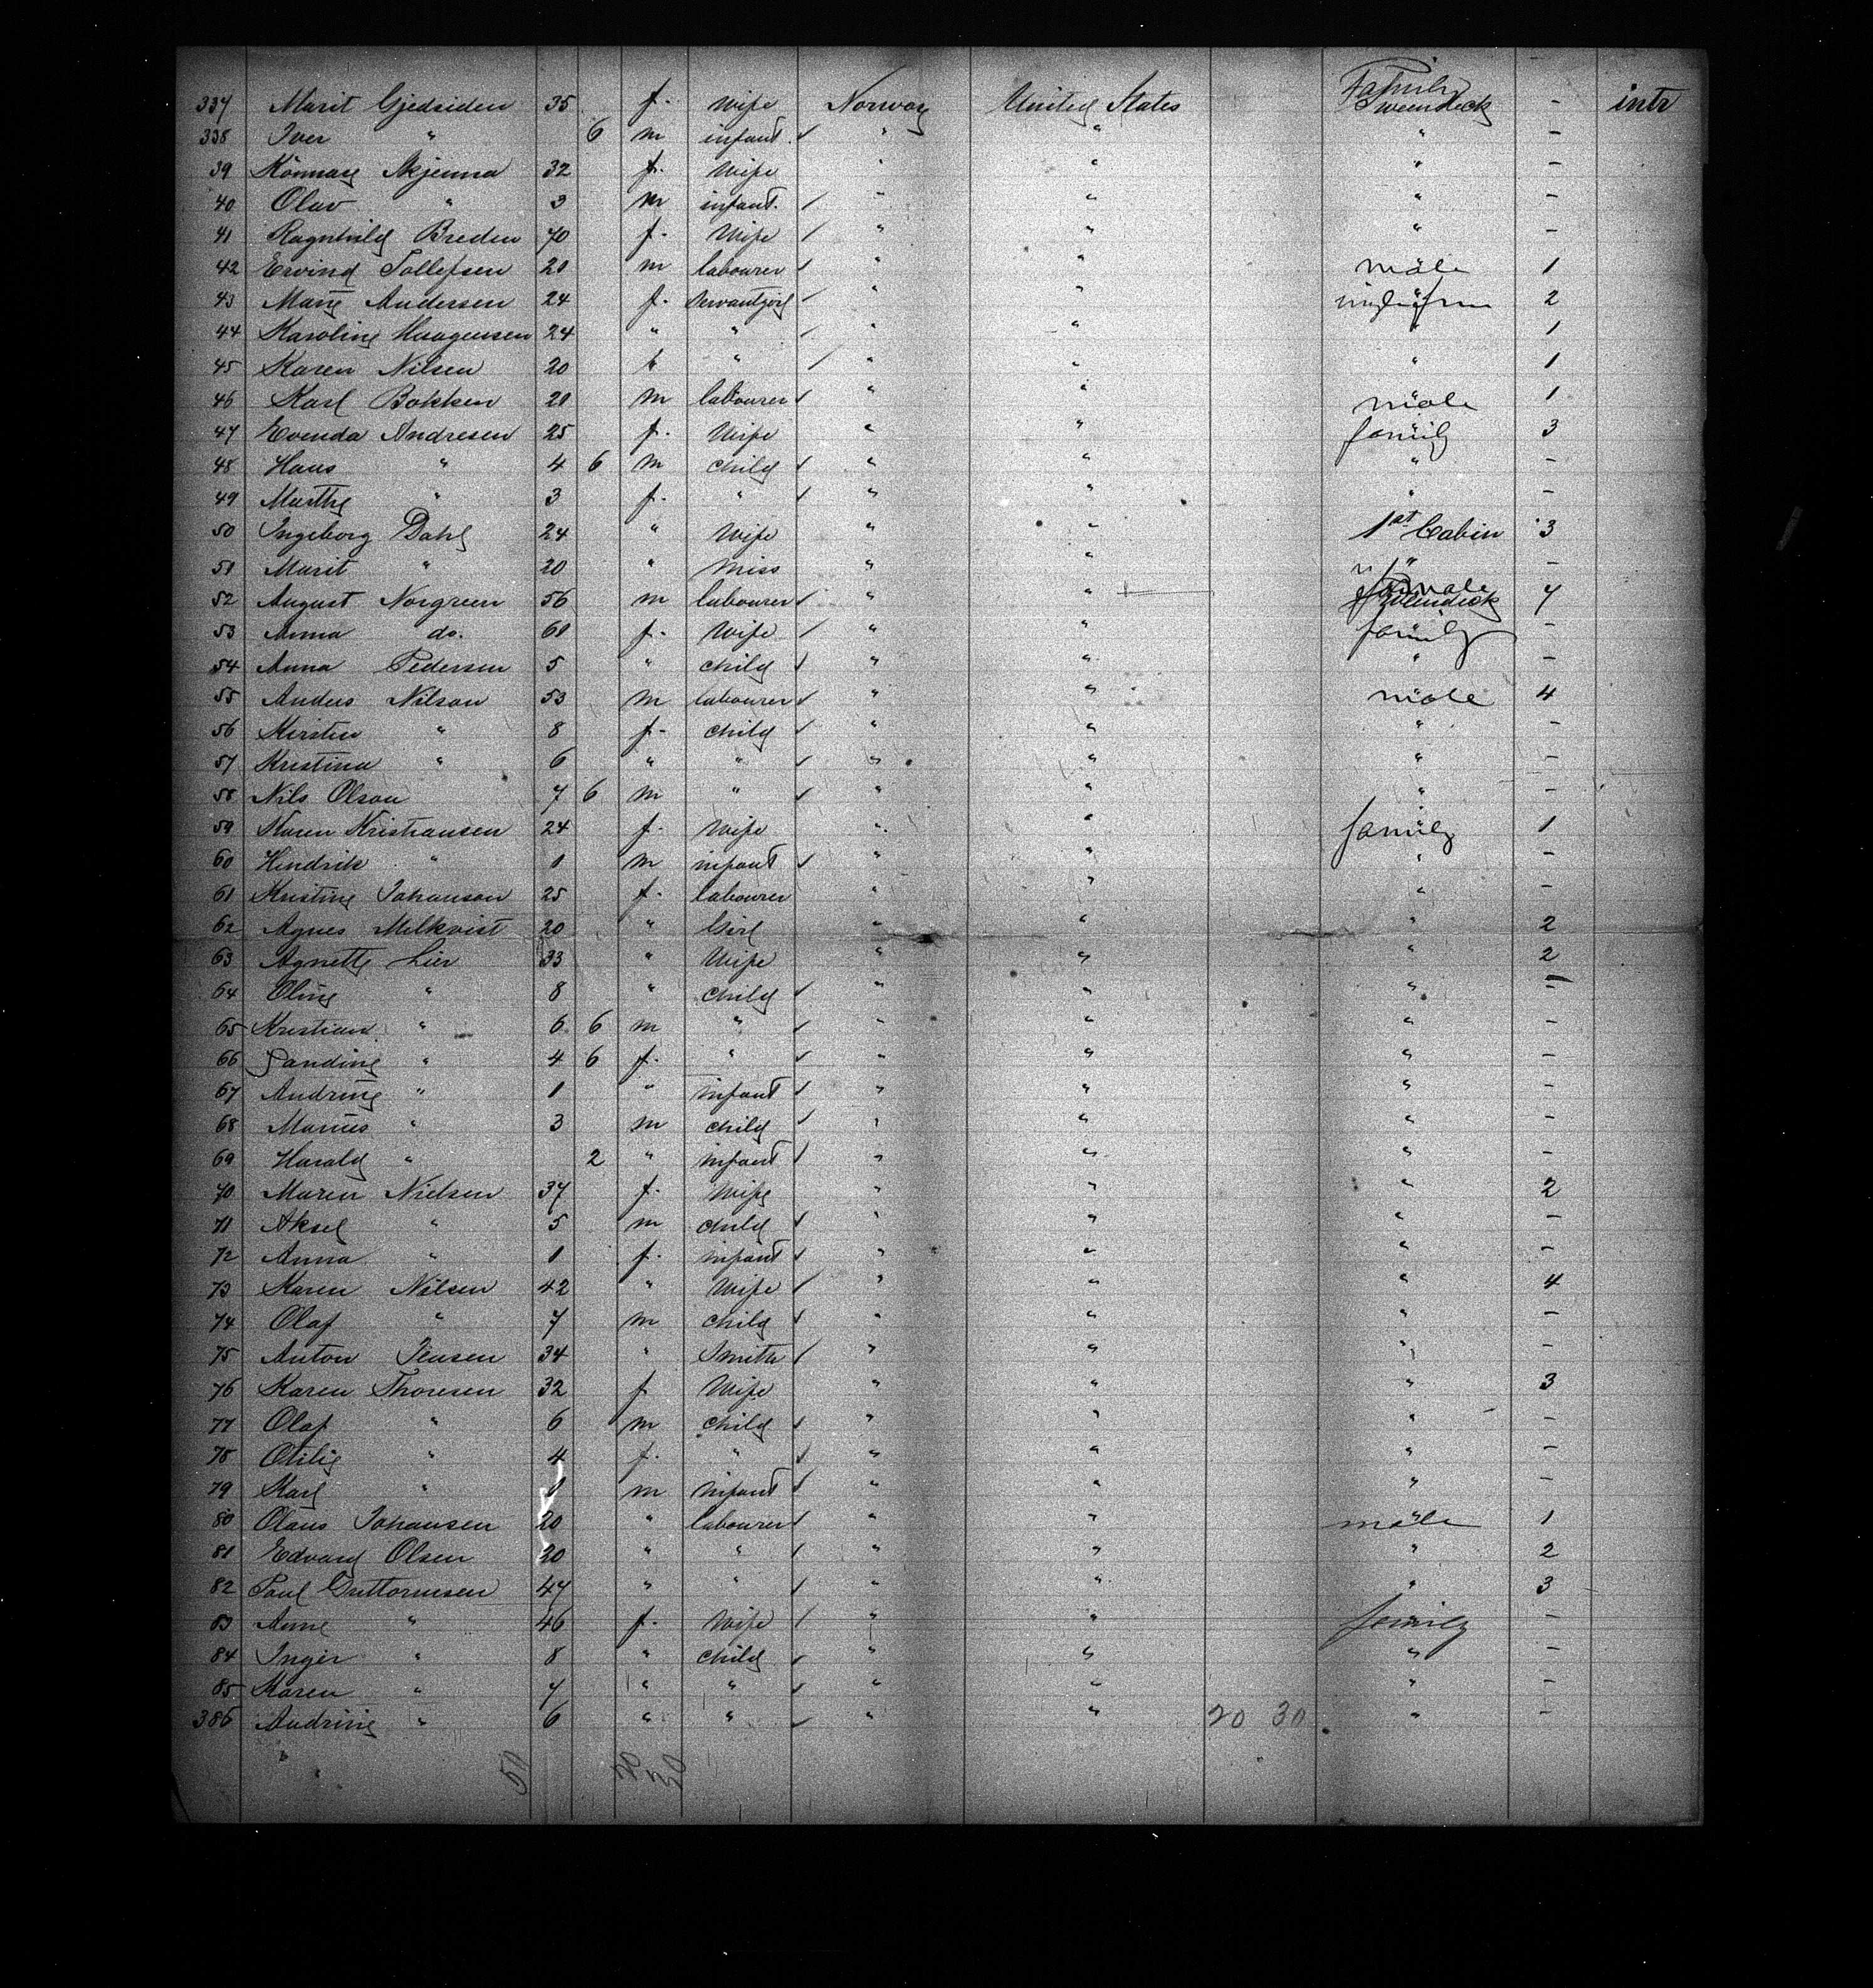 337 Marit Gjedsiden 35 f. Wife Norway United States Family Tweendeck - intr
338 Iver " 6 m infant " " " -
39 Skjenna 32 f. Wife " " " -
40 Olav " 3 m infant. " " " -
41 Ragnhild Breden 70 f. Wife " " " -
42 Tollefsen 20 m labourer " " male 1
43 Marie Andersen 24 f. Servantgirl " " 2
44 Karoline Haagensen 24 " " " " " 1
45 Karen Nilsen 20 " " " " " 1
46 Karl Bakken 21 m labourer " " male 1
47 Evenda Andresen 25 f. Wife " " family 3
48 Hans " 4 6 m child " " " -
49 Marthe " 3 f. " " " " -
50 Ingeborg Dahl 24 " Wife " " 1st Cabin 3
51 Marit " 20 " Miss " " " -
52 August Norgreen 56 m labourer " " male Tweendeck 7
53 Anna do. 61 f. Wife " " family -
54 Anna Pedersen 5 " child " " " -
55 Anders Nilson 53 m labourer " " male 4
56 Kirstin " 8 f. child " " " -
57 Kristina " 6 " " " " " -
58 Nils Olson 7 6 m " " " " -
59 Karen Kristiansen 24 f. Wife " " family 1
60 Hendrik " 1 m infant " " " -
61 Kristine Johanson 25 f. labourer " " " -
62 Agnes Melkvist 20 " Girl " " " 2
63 Agnette Lier 33 " Wife " " " 2
64 Oline " 8 " child " " " -
65 Kristian " 6 6 m " " " " -
66 " 4 6 f. " " " " -
67 Andrine " 1 " infant " " " -
68 Marius " 3 m child " " " -
69 Harald " 2 " infant " " " -
70 Maren Nielsen 37 f. Wife " " " 2
71 Aksel " 5 m child " " " -
72 Anna " 1 f. infant " " " -
73 Karen Nilsen 42 " Wife " " " 4
74 Olaf " 7 m child " " " -
75 Anton Jensen 34 " Smith " " " -
76 Karen Thoresen 32 f Wife " " " 3
77 Olaf " 6 m child " " " -
78 Otilie " 4 f. " " " " -
79 Karl " 1 m infant " " " -
80 Olaus Johansen 20 " labourer " " male 1
81 Edvard Olsen 20 " " " " " 2
82 Paul Guttormsen 47 " " " " " 3
83 Anne " 46 f. Wife " " family -
84 Inger " 8 " child " " " -
85 Karen " 7 " " " " " -
386 Andrine " 6 " " " " 20 30 " -
50 20 30